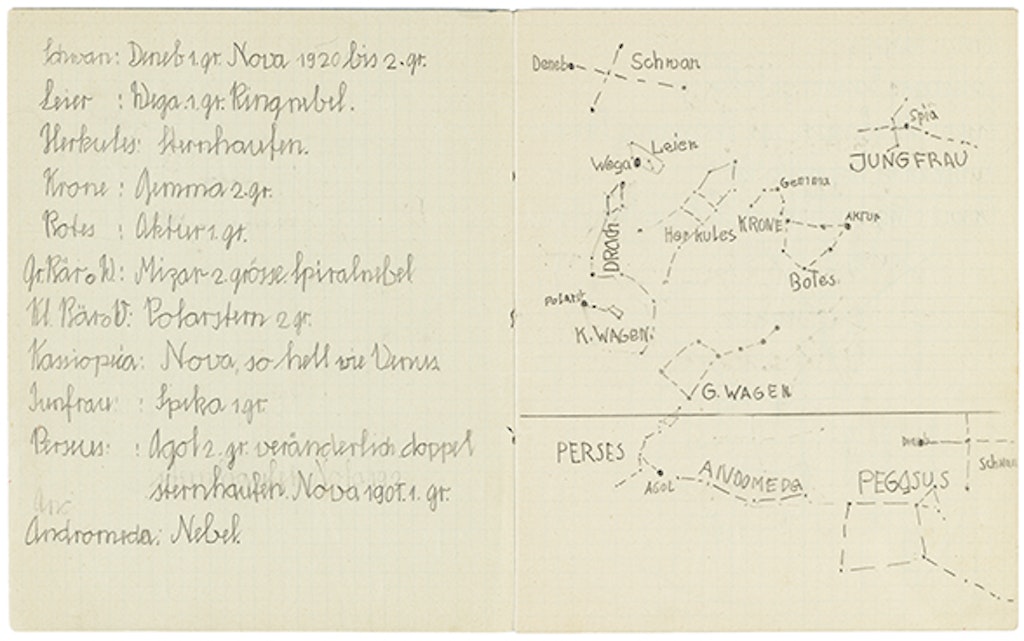 Schwan: Deneb 1 gr. Nova 1920 bis 2. gr.
Leier : Wega. 1. gr. Ringnebel.
Herkules: Sternhaufen.
Krone : Gemma 2. gr.
Botes : Aktur 1. gr.
Gr. Bär o W.: Mizar 2. grösse. Spiralnebel
Kl. Bär o W: Polarstern 2 gr.
Kassiopeia: Nova, so hell wie Venus
Junfrau : Spika 1 gr.
Perseus: : Agol 2. gr. veränderlich doppel
sternhaufen. Nova 1901. 1. gr.
And
Andromeda: Nebel.
Deneb
Schwan
Spia
JUNGFRAU
Wega
Leier
Gemma
DRACH
Herkules
KRONE
AKTUR
Botes
Polarst
K. WAGEN
G. WAGEN
PERSES
AGOL
ANDOMEDA
PEGASUS
Deneb
Schwan